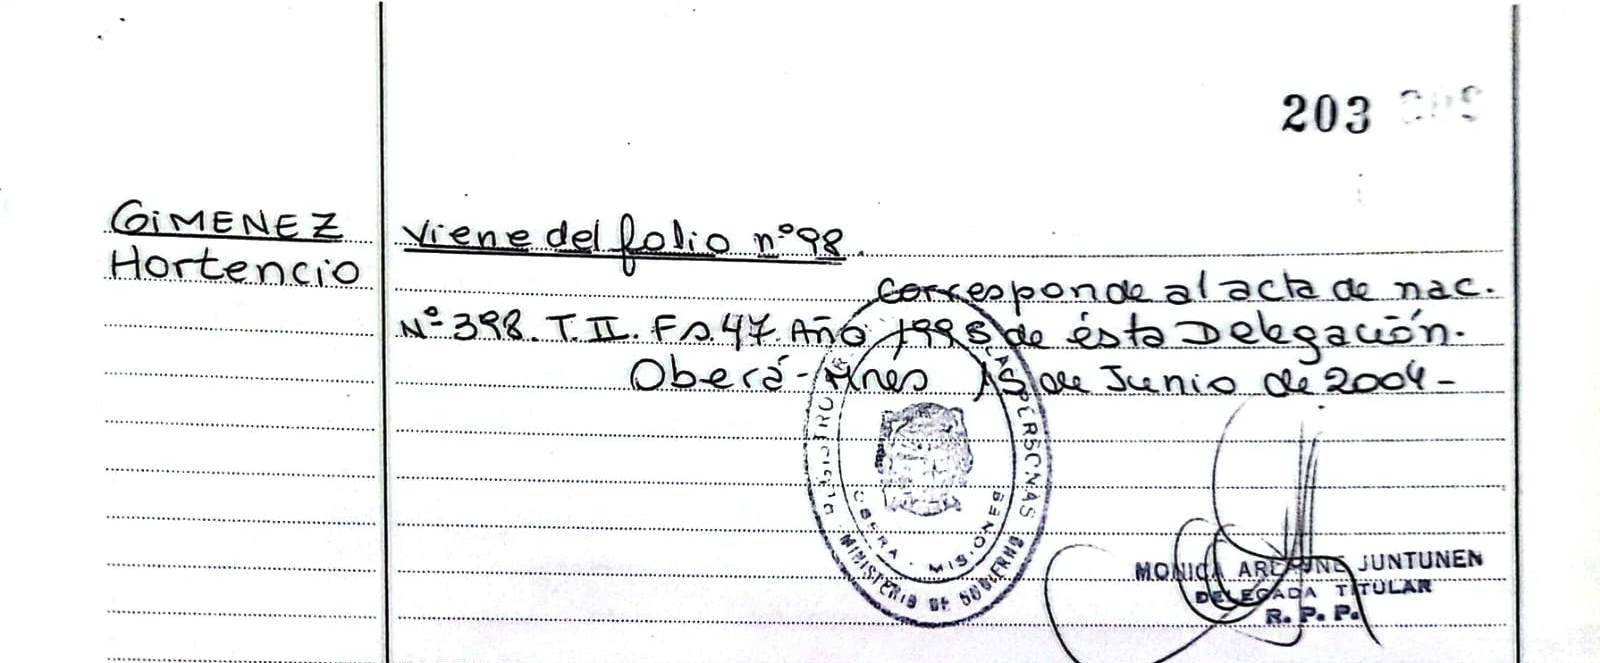 203
GIMENEZ
Hortencio
Viene del folio n°98.
Corresponde al acta de nac.
N° 398. T. II. Fo. 47. Año 1995 de ésta Delegación.
Oberá - Mnes 15 de Junio de 2004 -
REGISTRO LAS PERSONAS
OBERA - MISIONES
MINISTERIO DE GOBIERNO
MONICA JUNTUNEN
DELEGADA TITULAR
R. P. P.